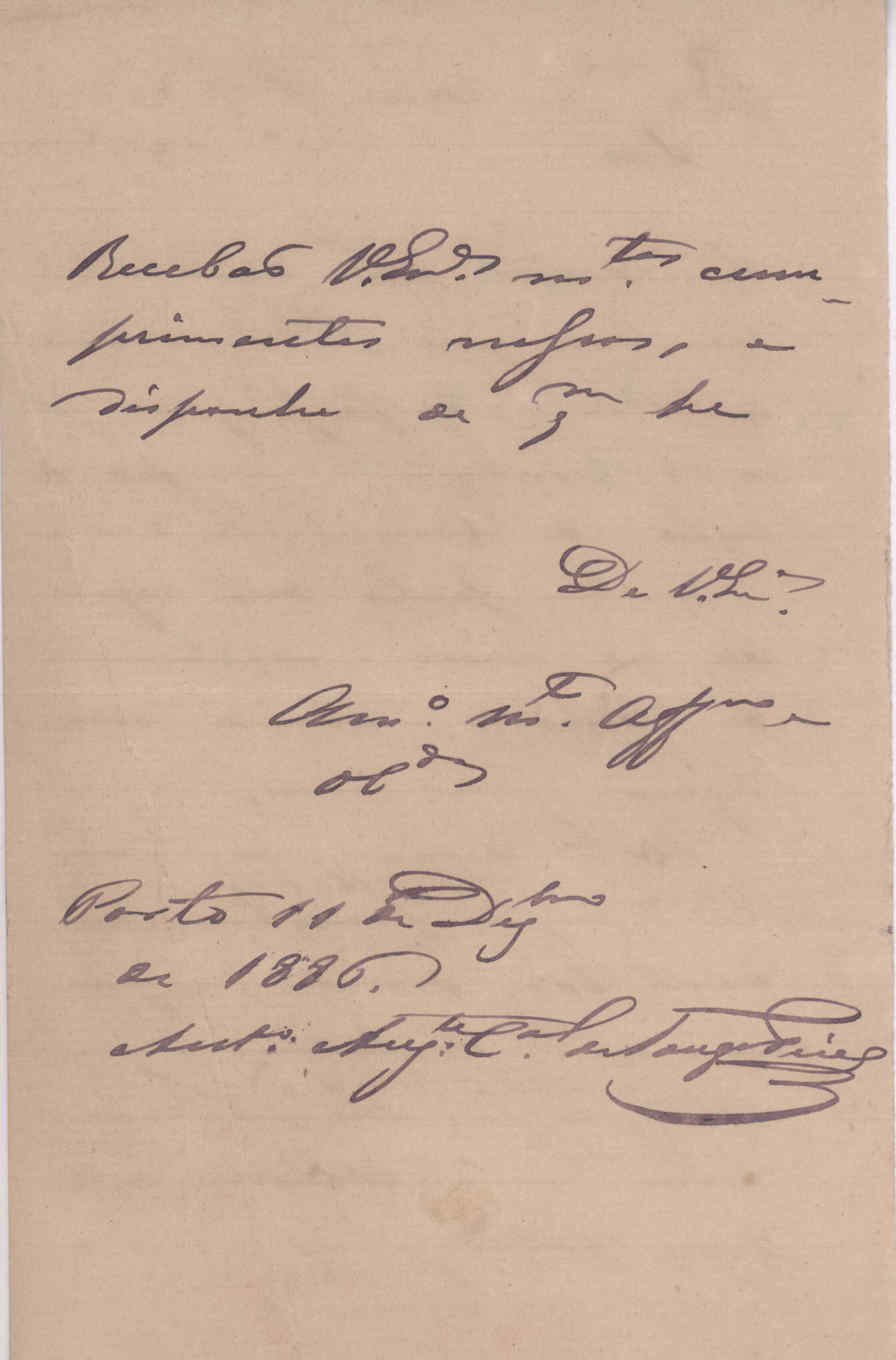 Recebaõ V. Ex.ᵃˢ m.ᵗᵒˢ cum-
primentos nossos, e
disponha de q.ᵐ he
De V. Ex.ᵃ
Am.º m.ᵗ Aff.ᵗᵘᵒˢᵒ e
ob.ᵈᵒ
Porto 11 de Dez.ᵇʳᵒ
de 1886.
Ant.º Aug.ᵗᵒ C.ᵃˡ de Pires